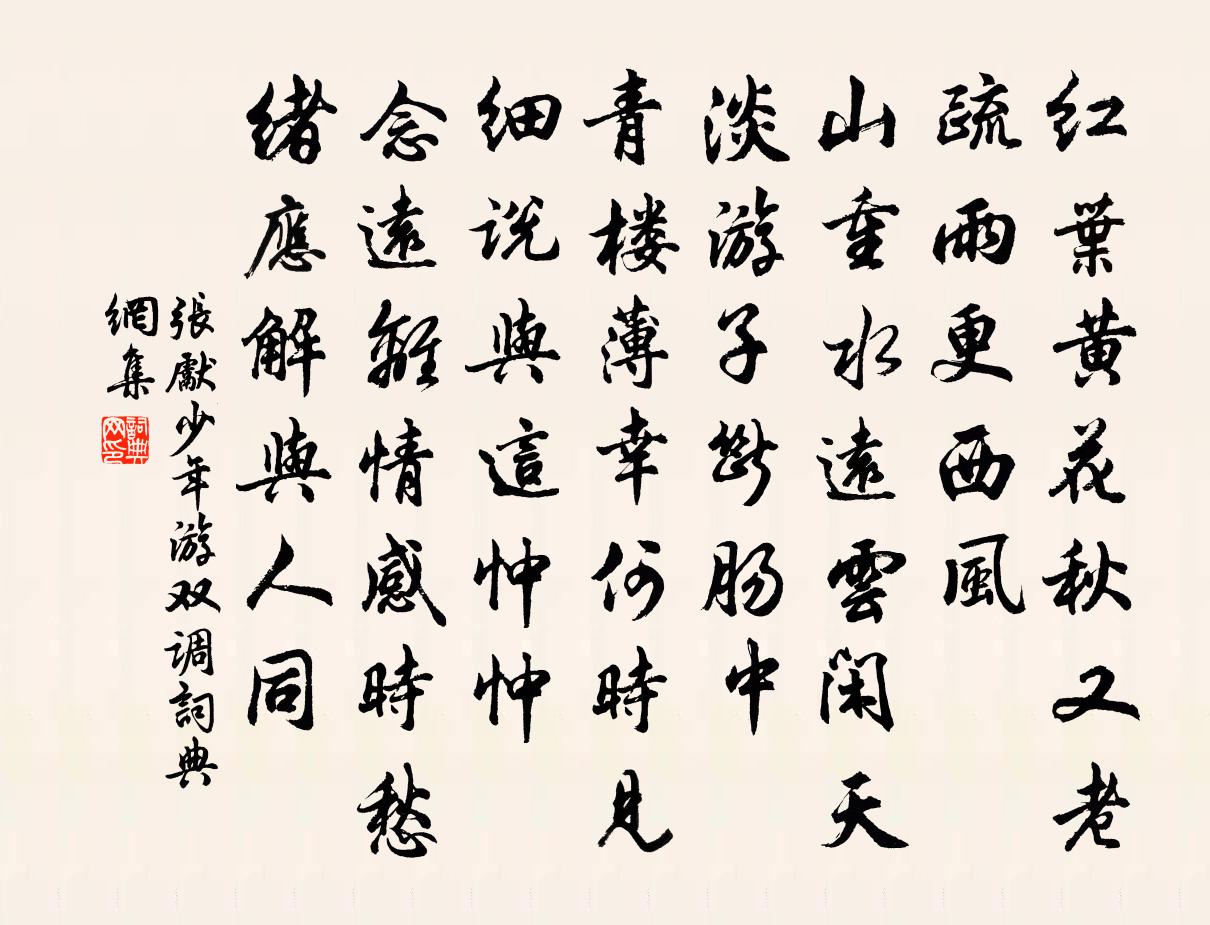 红葉黄花秋又老
疏雨更西風
山重水遠雲閑天
淡游子斷肠中
青楼薄幸何時見
细说與這忡忡
念遠離情感時愁
緒應解與人同
張獻少年游双调詞典
網集
詞典
网印